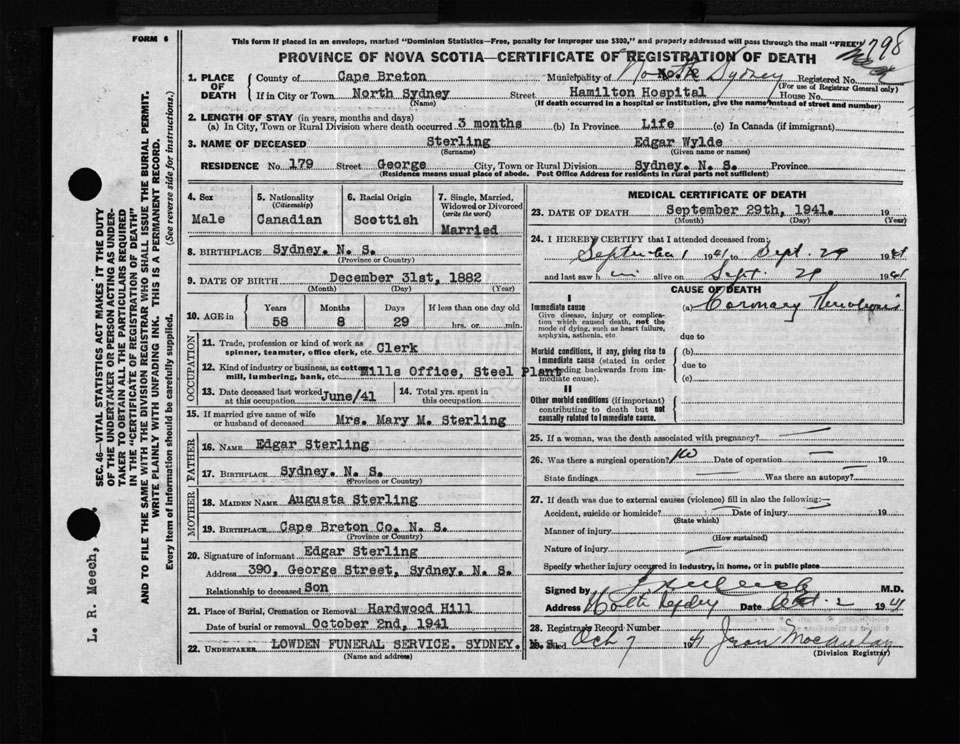 FORM 6
This form if placed in an envelope, marked "Dominion Statistics—Free, penalty for improper use $300," and properly addressed will pass through the mail "FREE"
798
PROVINCE OF NOVA SCOTIA—CERTIFICATE OF REGISTRATION OF DEATH
1. PLACE OF DEATH
County of Cape Breton Municipality of North Sydney Registered No.
(For use of Registrar General only)
If in City or Town North Sydney Street Hamilton Hospital House No.
(Name) (If death occurred in a hospital or institution, give the name instead of street and number)
2. LENGTH OF STAY (in years, months and days)
(a) In City, Town or Rural Division where death occurred 3 months (b) In Province Life (c) In Canada (if immigrant)
3. NAME OF DECEASED Sterling Edgar Wylde
(Surname) (Given name or names)
RESIDENCE No. 179 Street George City, Town or Rural Division Sydney. N. S. Province
(Residence means usual place of abode. Post Office Address for residents in rural parts not sufficient)
4. Sex
Male
5. Nationality
(Citizenship)
Canadian
6. Racial Origin
Scottish
7. Single, Married, Widowed or Divorced
(write the word)
Married
8. BIRTHPLACE Sydney. N. S.
(Province or Country)
9. DATE OF BIRTH December 31st, 1882
(Month) (Day) (Year)
10. AGE in
Years Months Days If less than one day old
58 8 29 hrs. or min.
OCCUPATION
11. Trade, profession or kind of work as spinner, teamster, office clerk, etc. Clerk
12. Kind of industry or business, as cotton mill, lumbering, bank, etc. Mills Office, Steel Plant
13. Date deceased last worked at this occupation June/41
14. Total yrs. spent in this occupation
15. If married give name of wife or husband of deceased Mrs. Mary M. Sterling
FATHER
16. NAME Edgar Sterling
17. BIRTHPLACE Sydney. N. S.
(Province or Country)
MOTHER
18. MAIDEN NAME Augusta Sterling
19. BIRTHPLACE Cape Breton Co. N. S.
(Province or Country)
20. Signature of informant Edgar Sterling
Address 390, George Street, Sydney. N. S.
Relationship to deceased Son
21. Place of Burial, Cremation or Removal Hardwood Hill
Date of burial or removal October 2nd, 1941
22. UNDERTAKER LOWDEN FUNERAL SERVICE. SYDNEY.
(Name and address)
MEDICAL CERTIFICATE OF DEATH
23. DATE OF DEATH September 29th, 1941. 19
(Month) (Day) (Year)
24. I HEREBY CERTIFY that I attended deceased from:
September 1 1941 to Sept. 29 1941
and last saw him alive on Sept. 29 1941
CAUSE OF DEATH
I
Immediate cause
Give disease, injury or complication which caused death, not the mode of dying, such as heart failure, asphyxia, asthenia, etc.
(a) Coronary Thrombosis
due to
Morbid conditions, if any, giving rise to immediate cause (stated in order proceeding backwards from immediate cause).
(b)
due to
(c)
II
Other morbid conditions (if important) contributing to death but not causally related to immediate cause.
25. If a woman, was the death associated with pregnancy?
26. Was there a surgical operation? No Date of operation 19
State findings Was there an autopsy?
27. If death was due to external causes (violence) fill in also the following:
Accident, suicide or homicide? Date of injury 19
(State which)
Manner of injury
(How sustained)
Nature of injury
Specify whether injury occurred in industry, in home, or in public place
Signed by M.D.
Address North Sydney Date Oct. 2 1941
28. Registrar's Record Number
Filed Oct 7 1941 Jean
(Division Registrar)
SEC. 46—VITAL STATISTICS ACT MAKES IT THE DUTY
OF THE UNDERTAKER OR PERSON ACTING AS UNDER-
TAKER TO OBTAIN ALL THE PARTICULARS REQUIRED
IN THE "CERTIFICATE OF REGISTRATION OF DEATH"
AND TO FILE THE SAME WITH THE DIVISION REGISTRAR WHO SHALL ISSUE THE BURIAL PERMIT.
WRITE PLAINLY WITH UNFADING INK. THIS IS A PERMANENT RECORD.
Every item of information should be carefully supplied. (See reverse side for instructions.)
L. R. Meech,